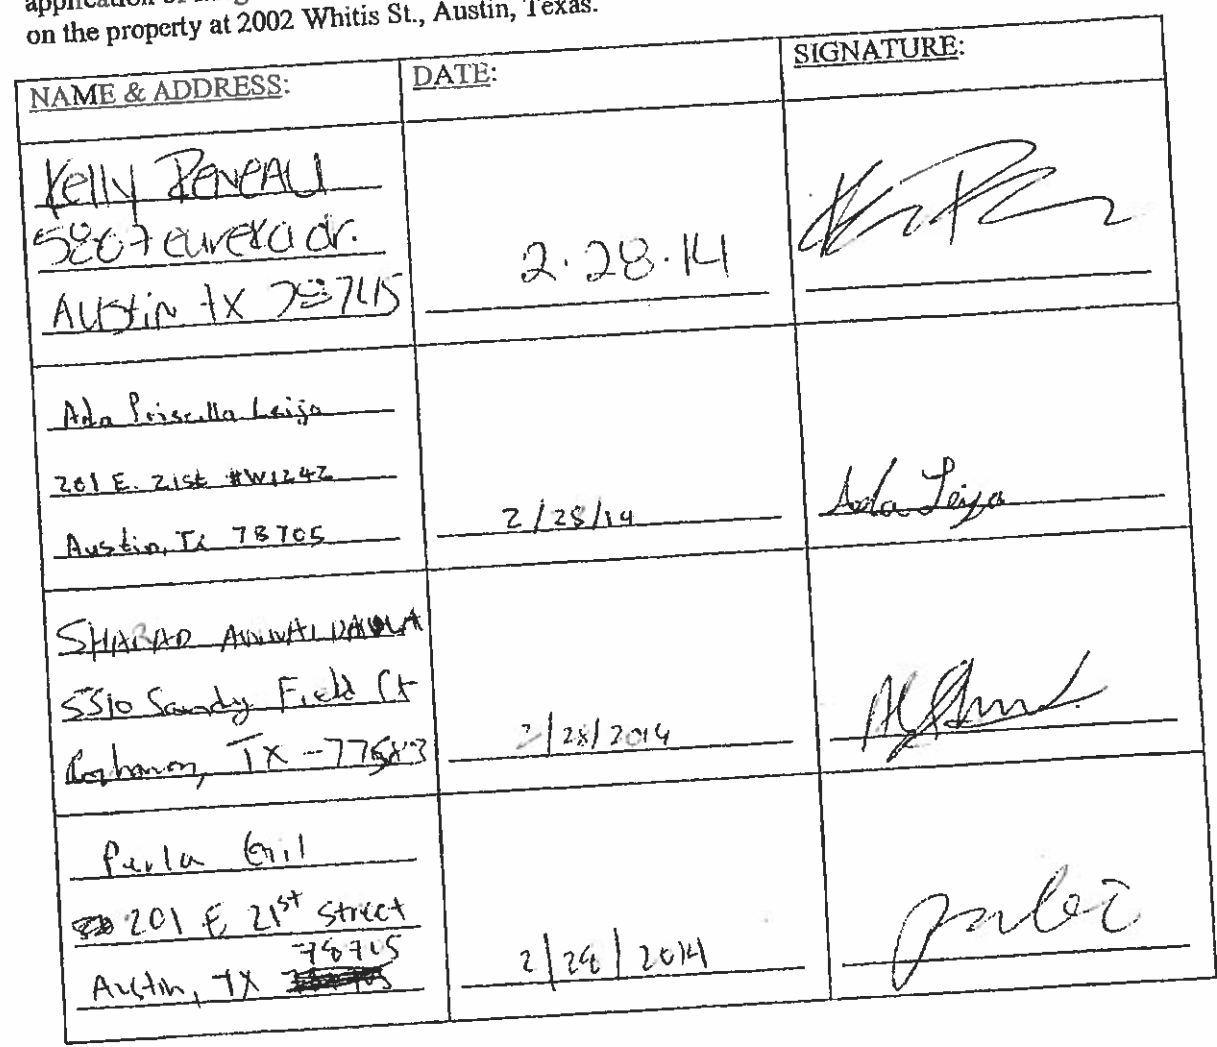 on the property at 2002 Whitis St., Austin, Texas.
NAME & ADDRESS: DATE: SIGNATURE:
Kelly Reneau
5807 eureka dr.
Austin tx 78745
2.28.14
Ada Priscilla Leija
201 E. 21st #W1242
Austin, Tx 78705
2/28/14
Ada Leija
SHARAD
5510 Sandy Field Ct
TX - 77583
2/28/2014
Perla Gil
201 E 21st Street
78705
Austin, TX
2/28/2014